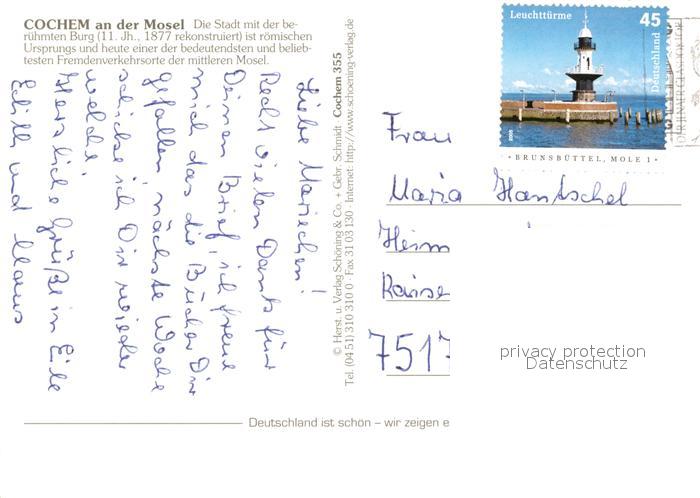 COCHEM an der Mosel Die Stadt mit der be-
rühmten Burg (11. Jh., 1877 rekonstruiert) ist römischen
Ursprungs und heute einer der bedeutendsten und belieb-
testen Fremdenverkehrsorte der mittleren Mosel.
Liebe Mariechen!
Recht vielen Dank für
Deinen Brief, ich freue
mich das die Bücher Dir
gefallen, nächste Woche
schicke ich Dir wieder
welche
Herzliche Grüße in Eile
Edith und Klaus
© Herst. u. Verlag Schöning & Co. + Gebr. Schmidt · Cochem 355
Tel. (04 51) 310 310 0 · Fax 31 03 130 · Internet: http://www.schoening-verlag.de
Leuchttürme 45
Deutschland
BRUNSBÜTTEL, MOLE 1
Frau
Maria Hantschel
Heim
Kaise
7517
privacy protection
Datenschutz
Deutschland ist schön – wir zeigen e